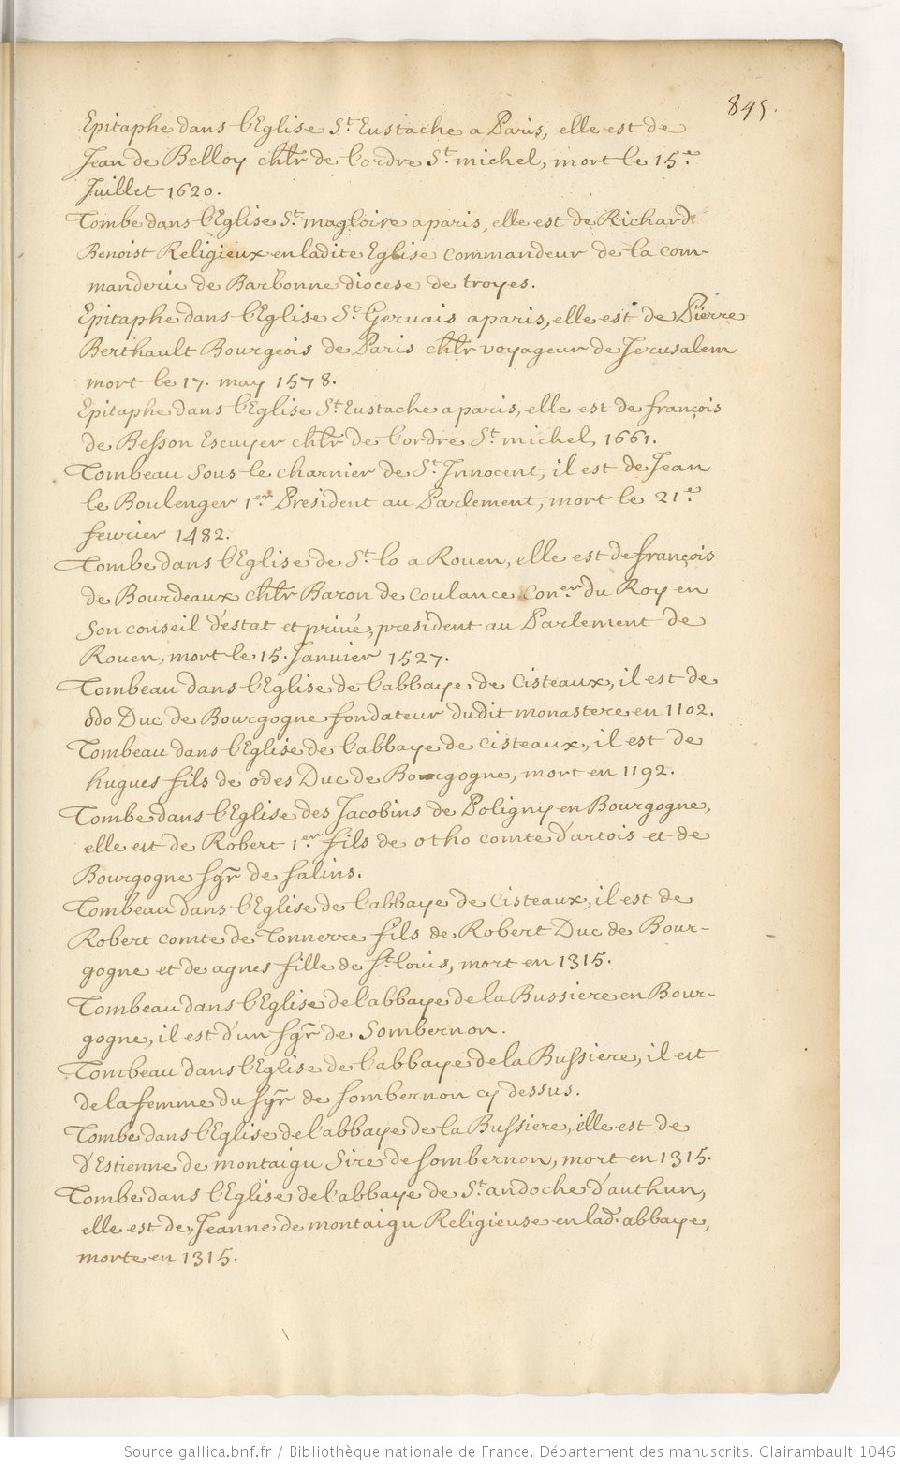 895.
Epitaphe dans l'Eglise St. Eustache a Paris, elle est de
Jean de Belloy chlr de l'ordre St. michel, mort le 15e
Juillet 1620.
Tombe dans l'Eglise St. magloire a paris, elle est de Richard
Benoist Religieux en ladite Eglise commandeur de la com-
manderie de Barbonne diocese de troyes.
Epitaphe dans l'Eglise St. Gervais a paris, elle est de Pierre
Berthault Bourgeois de Paris chlr voyageur de Jerusalem
mort le 17. may 1578.
Epitaphe dans l'Eglise St. Eustache a paris, elle est de françois
de Besson Escuyer chlr de l'ordre St. michel, 1661.
Tombeau sous le charnier de St. Innocent, il est de Jean
le Boulenger 1er President au Parlement, mort le 21e
fevrier 1482.
Tombe dans l'Eglise de St. lo a Rouen, elle est de françois
de Bourdeaux chlr Baron de Coulance Coner du Roy en
son conseil d'estat et privé, president au Parlement de
Rouen, mort le 15. Janvier 1527.
Tombeau dans l'Eglise de l'abbaye de Cisteaux, il est de
odo Duc de Bourgogne fondateur dudit monastere en 1102.
Tombeau dans l'Eglise de l'abbaye de cisteaux, il est de
hugues fils de odes Duc de Bourgogne, mort en 1192.
Tombe dans l'Eglise des Jacobins de Poligny en Bourgogne,
elle est de Robert 1er fils de otho comte d'artois et de
Bourgogne sgr de salins.
Tombeau dans l'Eglise de l'abbaye de Cisteaux, il est de
Robert comte de Tonnerre fils de Robert Duc de Bour-
gogne et de agnes fille de St. louis, mort en 1315.
Tombeau dans l'Eglise de l'abbaye de la Bussiere en Bour-
gogne, il est d'un sgr de Sombernon.
Tombeau dans l'Eglise de l'abbaye de la Bussiere, il est
de la femme du sgr de sombernon cy dessus.
Tombe dans l'Eglise de l'abbaye de la Bussiere, elle est de
d'Estienne de montaigu Sire de sombernon, mort en 1315.
Tombe dans l'Eglise de l'abbaye de St. andoche d'authun,
elle est de Jeanne de montaigu Religieuse en lad. abbaye,
morte en 1315.
Source gallica.bnf.fr / Bibliothèque nationale de France. Département des manuscrits. Clairambault 1046